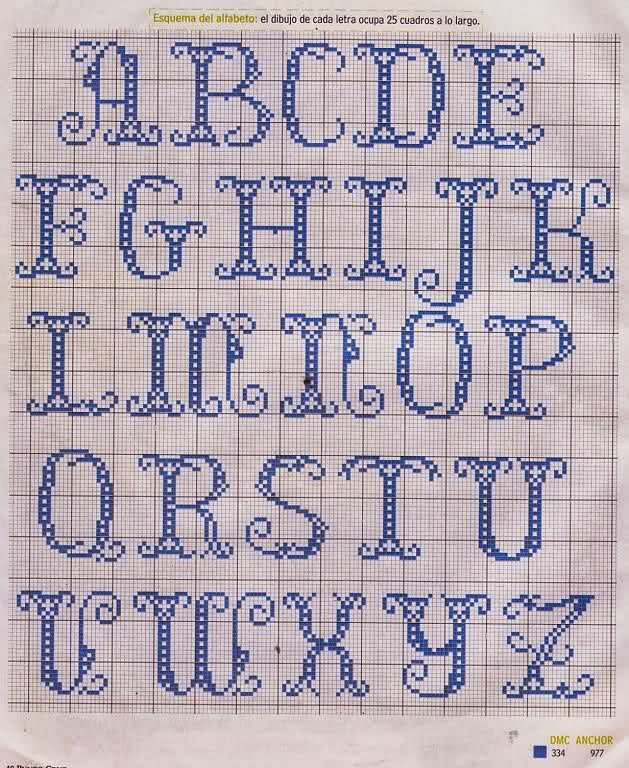 Esquema del alfabeto: el dibujo de cada letra ocupa 25 cuadros a lo largo.
A B C D E
F G H I J K
L M N O P
Q R S T U
V W X Y Z
DMC ANCHOR
334 977